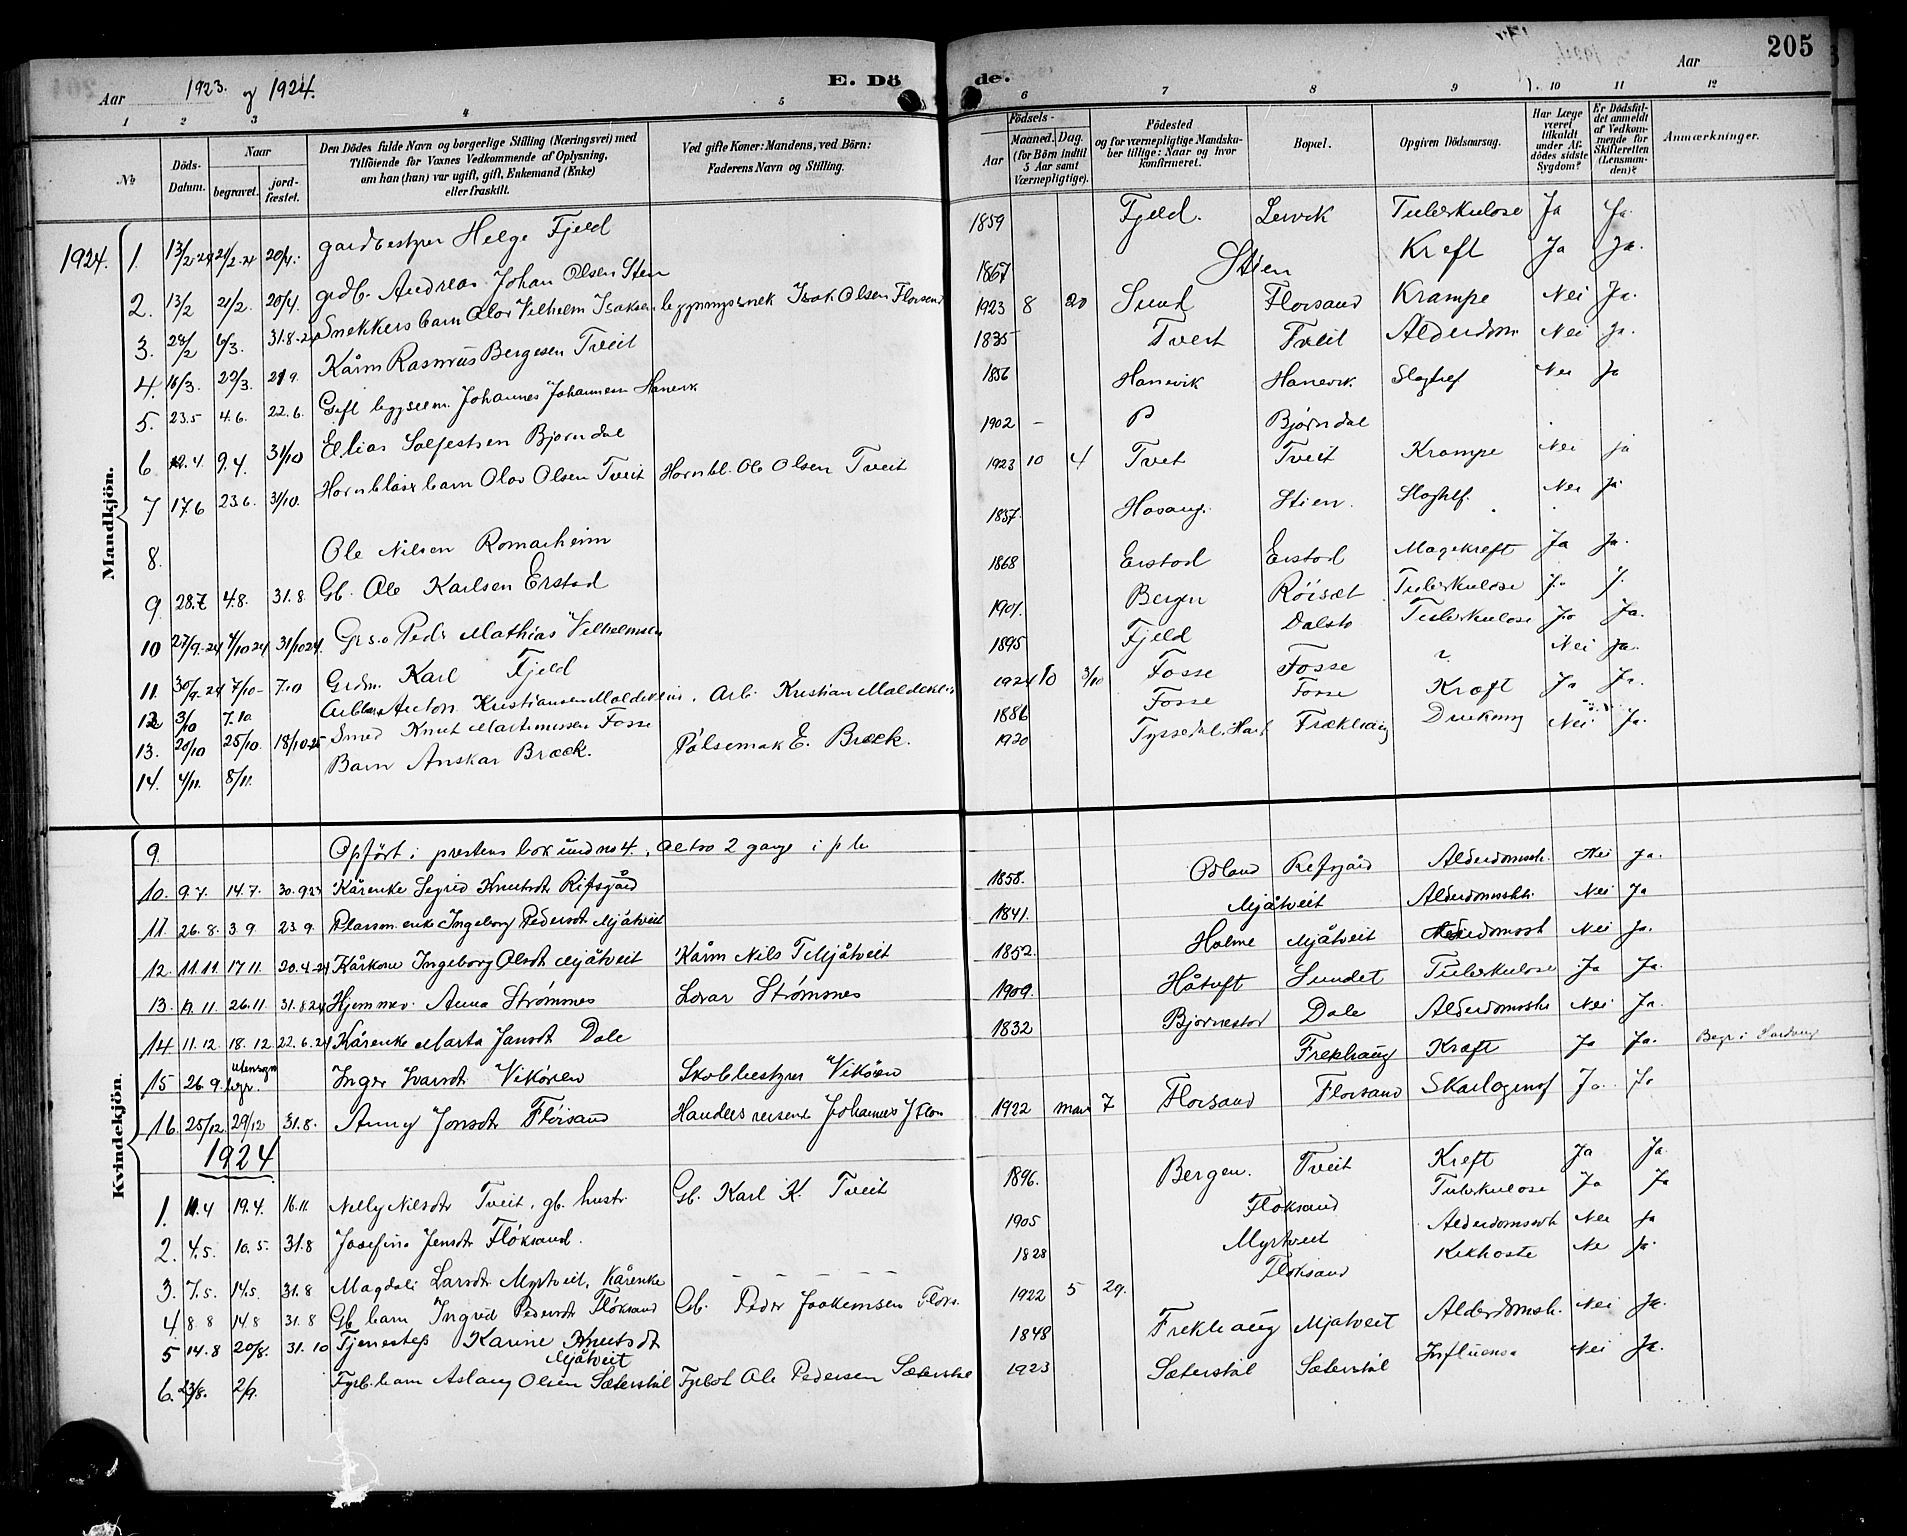 Aar 1923. og 1924. E. Döde. Aar 205
1 2 3 4 5 6 7 8 9 10 11 12
No
Döds-Datum.
Naar
begravet.
jord-fæstet.
Den Dödes fulde Navn og borgerlige Stilling (Næringsvei) med
Tilföiende for Voxnes Vedkommende af Oplysning,
om han (hun) var ugift, gift, Enkemand (Enke)
eller fraskilt.
Ved gifte Koner: Mandens, ved Börn:
Faderens Navn og Stilling.
Födsels-
Aar
Maaned. Dag.
(for Börn indtil
5 Aar samt
Værnepligtige).
Födested
og for værnepligtige Mandska-
ber tillige: Naar og hvor
konfirmeret.
Bopæl.
Opgiven Dödsaarsag.
Har Læge
været
tilkaldt
under Af-
dödes sidste
Sygdom?
Er Dödsfal-
det anmeldt
af Vedkom-
mende for
Skifteretten
(Lensman-
den)?
Anmærkninger.
Mandkjön.
1924. 1. 13/2-24 21/2.24 20/4. gardbestyrer Helge Fjeld 1859 Fjeld. Leirvik Tuberkulose Ja Ja.
2. 13/2 21/2. 20/4. grdb. Andreas Johan Olsen Stien 1867 Stien Kreft Ja Ja.
3. 28/2 6/3. 31.8.24 Snekkers barn Olav Vilhelm Isaksen Isak Olsen Florsand 1923 8 20 Sund Florsand Krampe Nei Ja.
4. 16/3. 22/3. 21 9. Kårm Rasmus Bergesen Tveit 1835 Tveit Tveit Alderdom Nei Ja.
5. 23.5 4.6. 22.6. Gift Johannes Johannesen Hanevik 1856 Hanevik Hanevik Slagtilf Nei Ja
6 4. 9.4. 31/10 Elias Salfestsen Bjørndal 1902 - P Bjørndal
7 17.6 23.6. 31/10. Hornblåser barn Olav Olsen Tveit Hornbl. Ole Olsen Tveit 1923 10 4 Tveit Tveit Krampe Nei ja
8. Ole Nilsen Romarheim 1857. Hosang. Stien. Slagtilf. Nei ja.
9 28.7 4.8. 31.8. Gb. Ole Karlsen Erstad 1868 Erstad Erstad Magekreft Ja Ja.
10 27/9-24 4/10 24 31/10 24. Peder Mathias Vilhelmsen 1901. Bergen Röiset Tuberkulose Ja J.
11. 30/9.24 7/10- 7.10 Grdm. Karl Fjeld 1895 Fjeld Dalsto Tuberkulose Ja Ja.
12 3/10 7.10 Anton Kristiansen Maldeklev. Arb. Kristian Maldeklev 1924 10 3/10 Fosse Fosse ? Nei Ja.
13. 20/10 25/10. 18/10-25 Smed Knut Martinussen Fosse 1886 Fosse Fosse Kræft Ja Ja.
14. 4/11. 8/11. Barn Anskar Bræck. Pölsemak E. Bræck. 1920 Tyssedal, Hard Frekhaug Drukning Nei Ja.
Kvindekjön.
9. Opført i prestens bok und no 4.
10. 9.7. 14.7. 30.9 23 Kårenke Sigrid Knutsdt Rifsgård 1858. Odland Refsgård Alderdomssk. Nei Ja.
11. 26.8. 3 9. 23.9. Plassm. enke Ingeborg Pedersdt. Mjåtveit 1841. Mjåtveit Alderdomsskh. Nei Ja
12. 11.11. 17 11. 20.4.24 Kårkone Ingeborg Olsdt Mjåtveit Kårm Nils T. Mjåtveit 1852. Holme Mjåtveit Alderdomssk Nei Ja.
13. 19.11. 26.11. 31.8 24 Hjemmev. Anna Strömsnes Lorar Strömsnes 1909. Håtuft Sundet Tuberkulose Ja Ja.
14. 11.12. 18.12 22.6.24 Kårenke Marta Jansdt Dale 1832 Bjørnestad Dale Alderdomssk Nei Ja.
15 26.9. utensogns begr. Inger Ivarsdt Vikören Skolebestyrer Vikören Frekhaug Kræft Ja Ja. Begr. i Hardang
16. 25/12. 29/12 31.8. Anny Jonsdt Flörsand Handelsreisend Johannes J Flor 1922 mars 7 Florsand Florsand Skarlagensf Ja. Ja
1924
1. 11.4 19.4. 16.11. Nelly Nilsdtr Tveit, gb. hustr. Gb. Karl K. Tveit 1896. Bergen. Tveit Kreft Ja Ja.
2. 4.5. 10.5. 31.8 Josefine Jensdtr Flöksand. 1905 Floksand Tuberkulose Ja Ja
3. 7.5. 14.5. 31.8 Magdali Larsdtr Myrtveit, Kårenke 1828 Myrtveit Alderdomssvk Nei Ja
4 8 8 14.8 31.8 Gb. barn Ingrid Pedersdtr Flöksand Gb. Peder Joakimsen Flörs. 1922 5 29. Floksand Kikhoste Ne Ja.
5 14.8 20/8. 31.10 Tjenestep Karine Knutsdt Mjåtveit 1848 Frekhaug Mjatveit Alderdomssk. Nei Ja.
6. 23/8. 2/9. Fyrb. barn Aslaug Olsen Sæterstøl Fyrbot Ole Pedersen Sæterstøl 1923 Sæterstøl Sæterstøl Influensa Nei Ja.